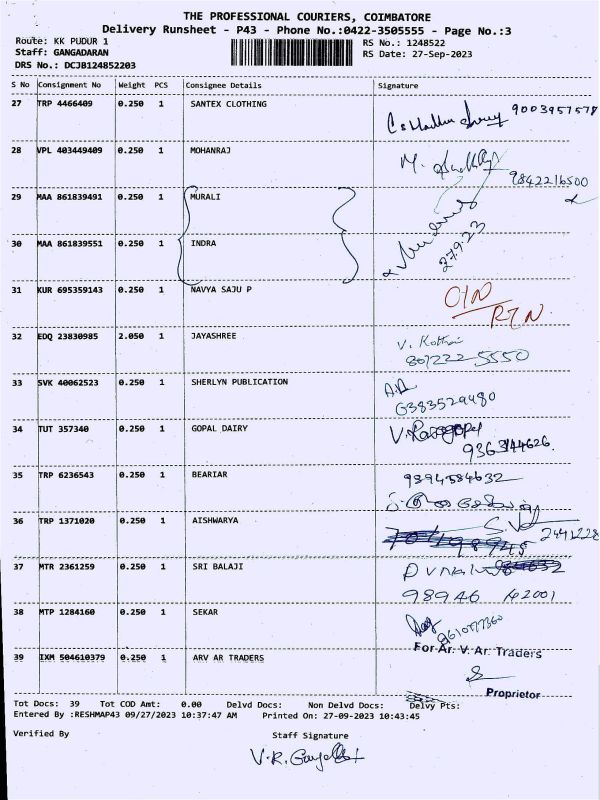 THE PROFESSIONAL COURIERS, COIMBATORE
Delivery Runsheet - P43 - Phone No.:0422-3505555 - Page No.:3
Route: KK PUDUR 1
RS No.: 1248522
Staff: GANGADARAN
RS Date: 27-Sep-2023
DRS No.: DCJB124852203
S No Consignment No Weight PCS Consignee Details Signature
27 TRP 4466409 0.250 1 SANTEX CLOTHING
28 VPL 403449409 0.250 1 MOHANRAJ M.
9842216500
29 MAA 861839491 0.250 1 MURALI
30 MAA 861839551 0.250 1 INDRA
27.9.23
31 KUR 695359143 0.250 1 NAVYA SAJU P
RTN
32 EDQ 23830985 2.050 1 JAYASHREE V.
33 SVK 40062523 0.250 1 SHERLYN PUBLICATION
6383529480
34 TUT 357340 0.250 1 GOPAL DAIRY
35 TRP 6236543 0.250 1 BEARIAR 9894584632
36 TRP 1371020 0.250 1 AISHWARYA
2441228
37 MTR 2361259 0.250 1 SRI BALAJI
98946 42001
38 MTP 1284160 0.250 1 SEKAR
39 IXM 504610379 0.250 1 ARV AR TRADERS For Ar. V. Ar. Traders
Proprietor
Tot Docs: 39 Tot COD Amt: 0.00 Delvd Docs: Non Delvd Docs: Delvy Pts:
Entered By :RESHMAP43 09/27/2023 10:37:47 AM Printed On: 27-09-2023 10:43:45
Verified By Staff Signature